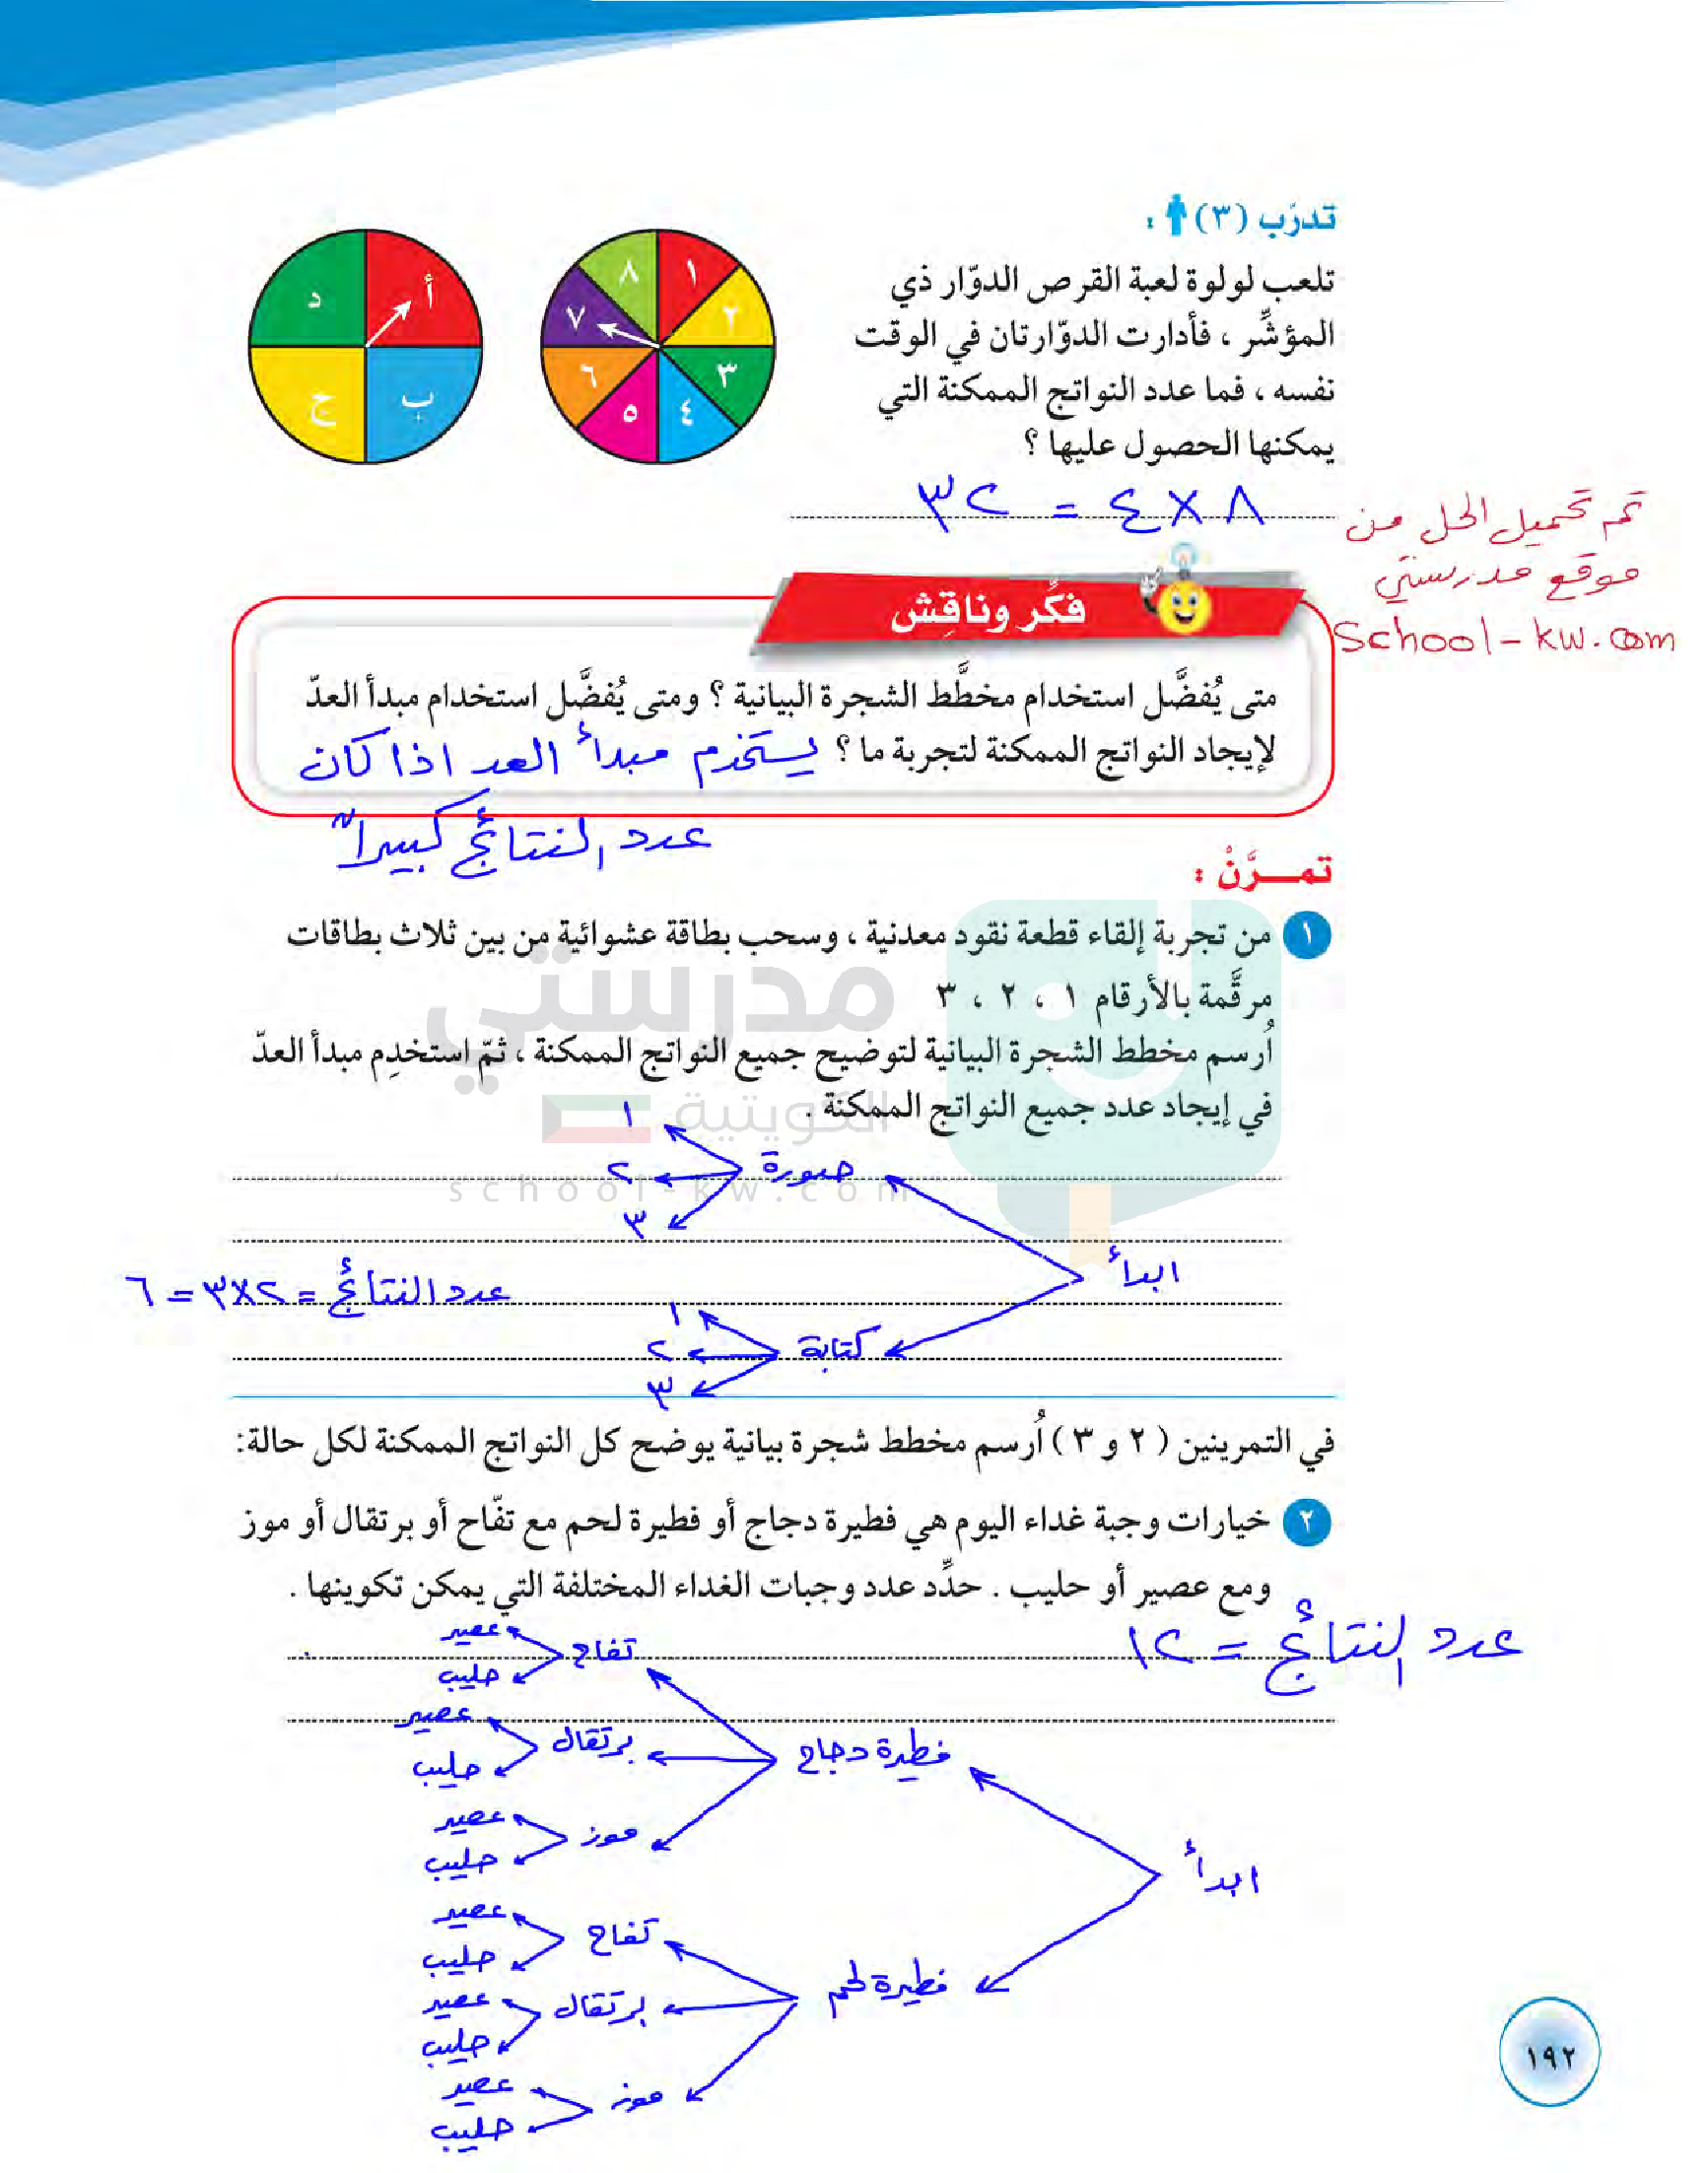 تدرّب (٣) :
تلعب لولوة لعبة القرص الدوّار ذي
المؤشِّر ، فأدارت الدوّارتان في الوقت
نفسه ، فما عدد النواتج الممكنة التي
يمكنها الحصول عليها ؟
١
٢
٣
٤
٥
٦
٧
٨
أ
ب
ج
د
٨ × ٤ = ٣٢
تم تحميل الحل من
موقع مدرستي
school-kw.com
فكِّر وناقِش
متى يُفضَّل استخدام مخطَّط الشجرة البيانية ؟ ومتى يُفضَّل استخدام مبدأ العدّ
لإيجاد النواتج الممكنة لتجربة ما ؟ يستخدم مبدأ العد اذا كان
عدد النتائج كبيراً
تمـــرَّنْ :
١ من تجربة إلقاء قطعة نقود معدنية ، وسحب بطاقة عشوائية من بين ثلاث بطاقات
مرقَّمة بالأرقام ١ ، ٢ ، ٣
اُرسم مخطط الشجرة البيانية لتوضيح جميع النواتج الممكنة ، ثمّ استخدِم مبدأ العدّ
في إيجاد عدد جميع النواتج الممكنة .
مدرستي
الكويتية
school-kw.com
ابدأ
صورة
١
٢
٣
كتابة
١
٢
٣
عدد النتائج = ٢×٣ = ٦
في التمرينين ( ٢ و ٣ ) اُرسم مخطط شجرة بيانية يوضح كل النواتج الممكنة لكل حالة:
٢ خيارات وجبة غداء اليوم هي فطيرة دجاج أو فطيرة لحم مع تفّاح أو برتقال أو موز
ومع عصير أو حليب . حدِّد عدد وجبات الغداء المختلفة التي يمكن تكوينها .
عدد النتائج = ١٢
ابدأ
فطيرة دجاج
تفاح
عصير
حليب
برتقال
عصير
حليب
موز
عصير
حليب
فطيرة لحم
تفاح
عصير
حليب
برتقال
عصير
حليب
موز
عصير
حليب
١٩٢